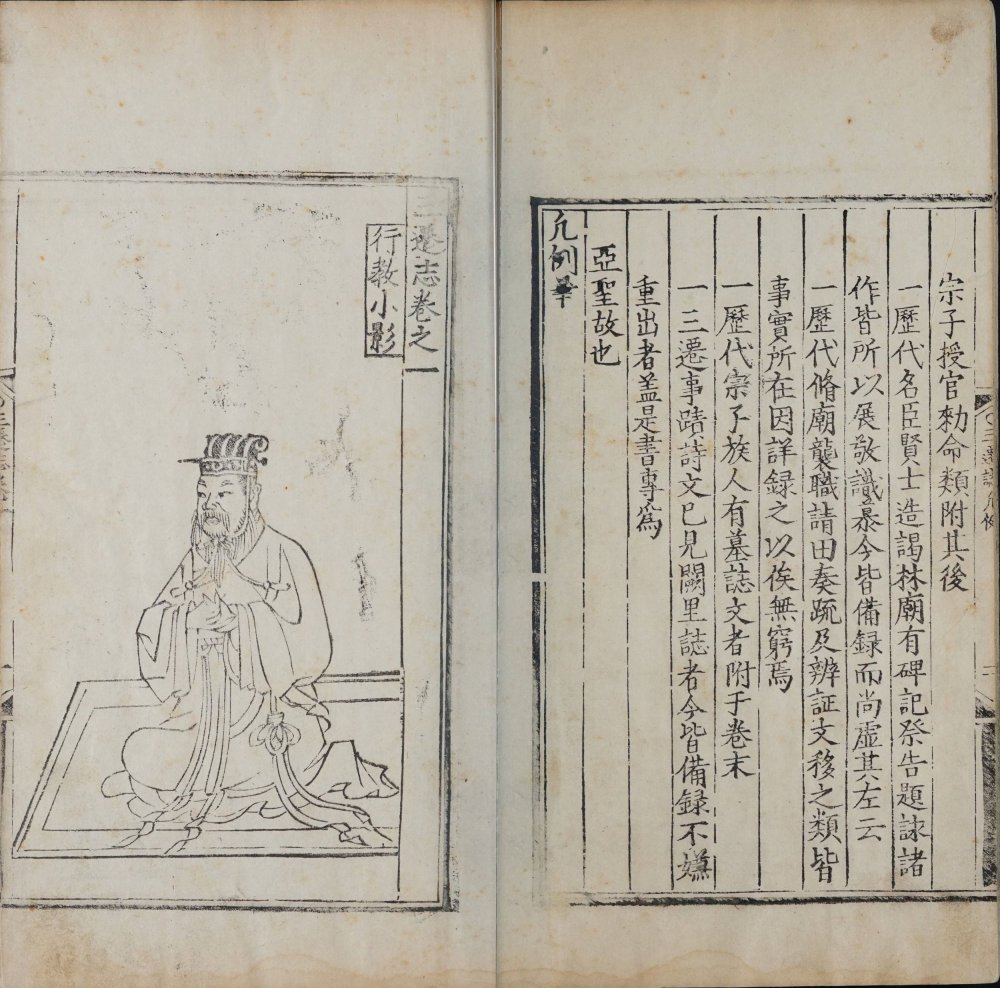 宗子授官勑命類附其後
一歷代名臣賢士造謁林廟有碑記祭告題詠諸
作皆所以展敬識景今皆備録而尚虛其左云
一歷代脩廟襲職請田奏疏及辨証文移之類皆
事實所在因詳録之以俟無窮焉
一歷代宗子族人有墓誌文者附于卷末
一三遷事蹟詩文已見闕里誌者今皆備録不嫌
重出者盖是書專爲
亞聖故也
凡例畢
三遷志卷之一
行教小影